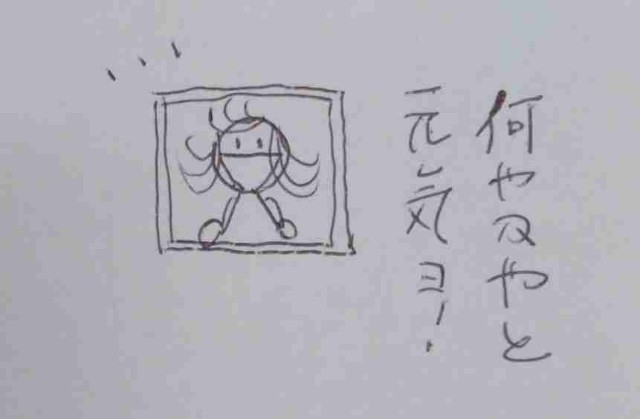 何やヌやと
元気ヨ!